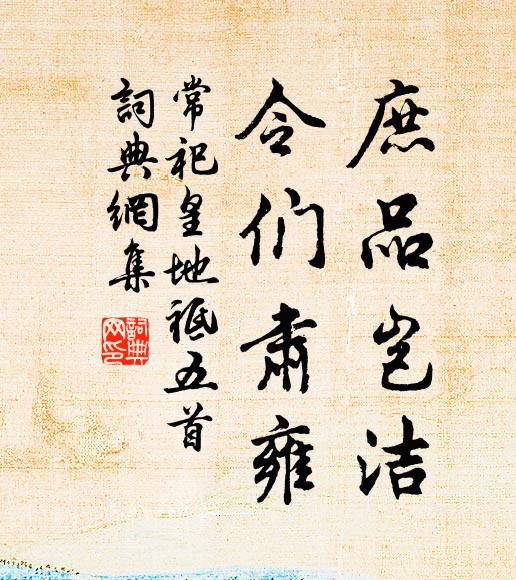 庶品岂洁
令们肃雍
常祀皇地祗五首
詞典網集
詞典
网印